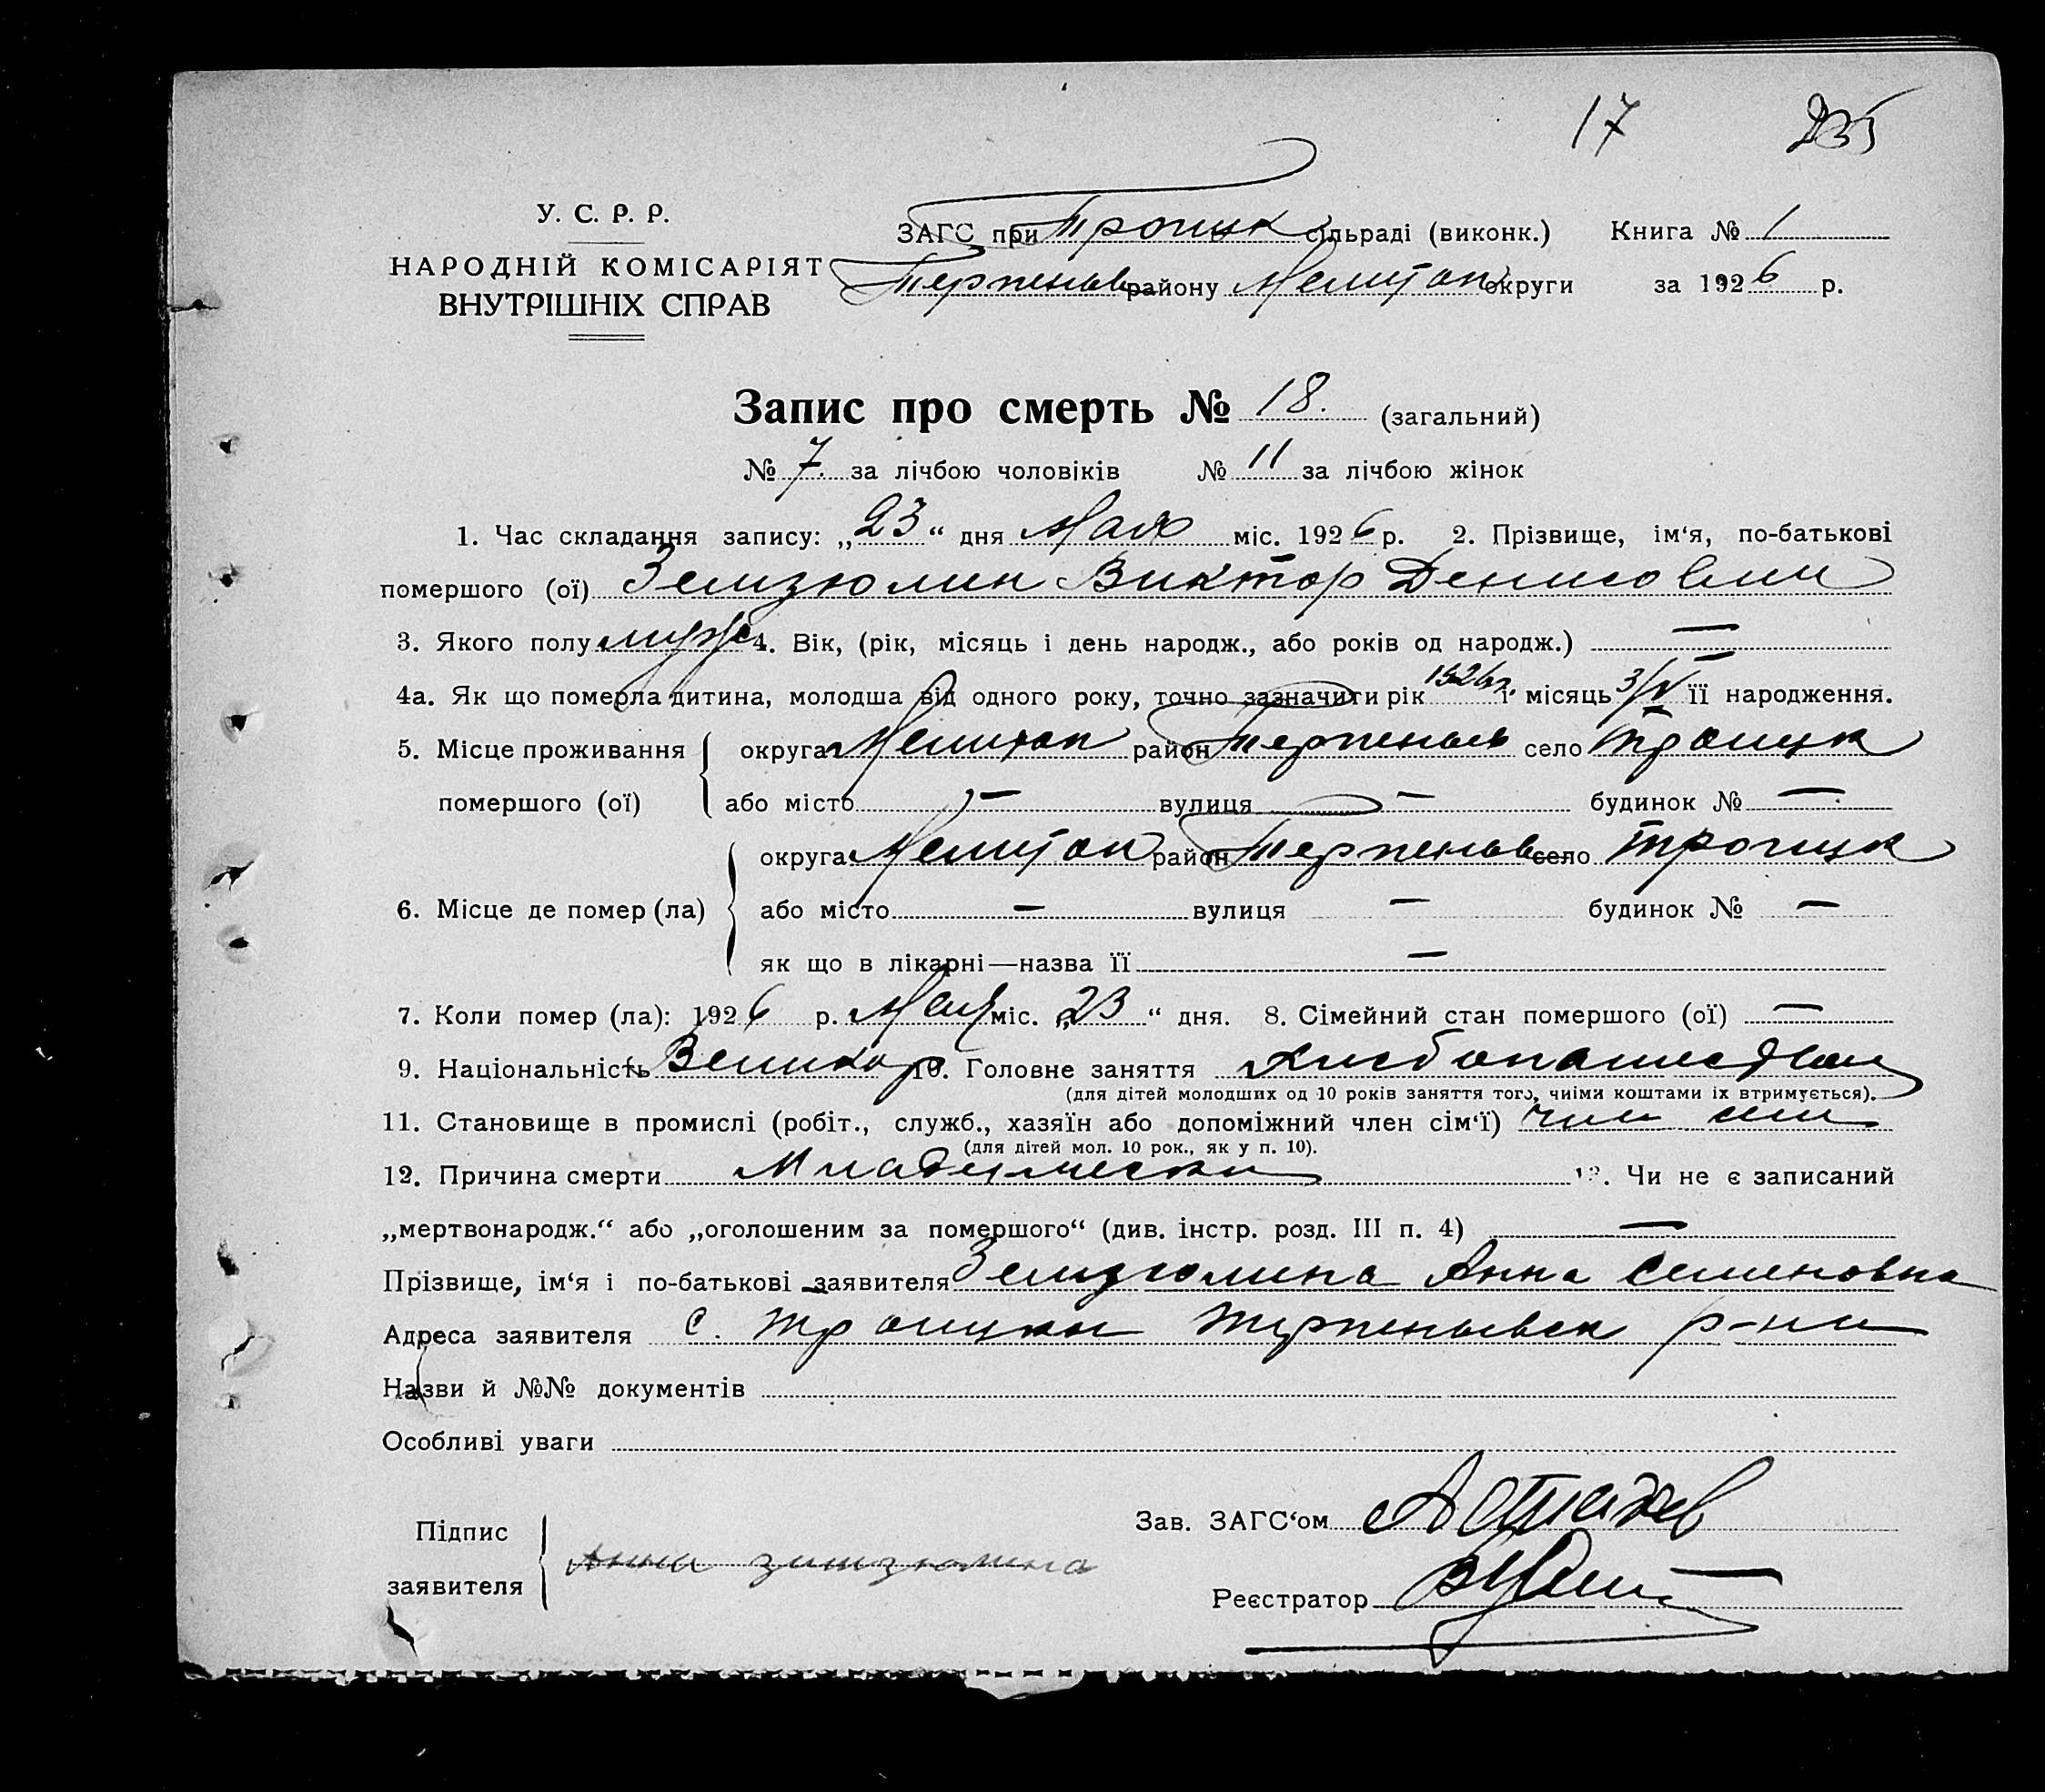 17 235
У. С. Р. Р.
НАРОДНІЙ КОМІСАРІЯТ
ВНУТРІШНІХ СПРАВ
ЗАГС при Троицк сільраді (виконк.) Книга № 1
Терпеньев району Мелитоп округи за 1926 р.
Запис про смерть № 18. (загальний)
№ 7. за лічбою чоловіків № 11 за лічбою жінок
1. Час складання запису: „23“ дня Мая міс. 1926 р. 2. Прізвище, ім‘я, по-батькові
помершого (ої) Земзюлин Виктор Денисович
3. Якого полу муж 4. Вік, (рік, місяць і день народж., або років од народж.) —
4а. Як що померла дитина, молодша від одного року, точно зазначити рік 1926 г. і місяць 3/V її народження.
5. Місце проживання округа Мелитоп район Терпеньев село Троицк
помершого (ої) або місто — вулиця — будинок № —
округа Мелитоп район Терпеньев село Троицк
6. Місце де помер (ла) або місто — вулиця — будинок № —
як що в лікарні—назва її —
7. Коли помер (ла): 1926 р. Мая міс. „23“ дня. 8. Сімейний стан помершого (ої) —
9. Національність Великор 10. Головне заняття Хлебопашество
(для дітей молодших од 10 років заняття того, чиіми коштами їх втримується).
11. Становище в промислі (робіт., служб., хазяїн або допоміжний член сім‘ї) член сем
(для дітей мол. 10 рок., як у п. 10).
12. Причина смерти Младенческая 13. Чи не є записаний
„мертвонародж.“ або „оголошеним за помершого“ (див. інстр. розд. III п. 4) —
Прізвище, ім‘я і по-батькові заявителя Земзюлина Анна Семеновна
Адреса заявителя с. Троицкое Терпеньевск р-на
Назви й №№ документів
Особливі уваги
Підпис
заявителя Анна Зимзюлина
Зав. ЗАГС‘ом
Реєстратор